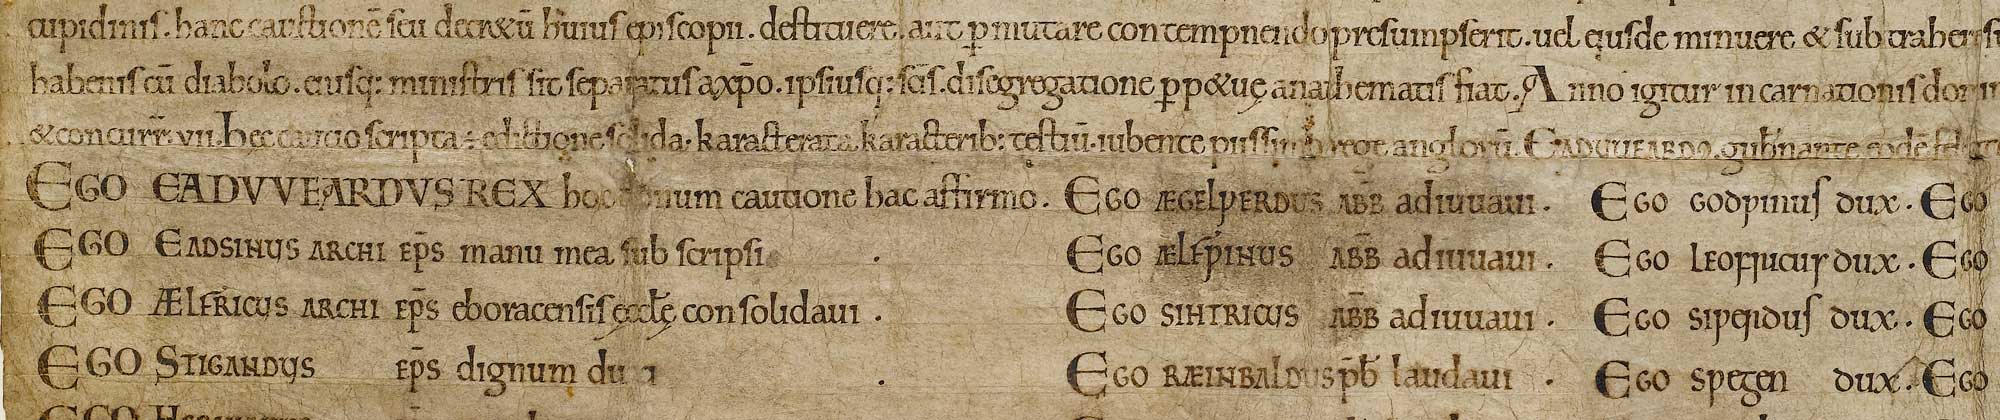 cupidinis. hanc cautionē seu decr&ū huius episcopii. destituere. aut ꝑmutare contempnendo presumpserit. uel eiusde minuere & subtraher
habenis cū diabolo. eiusq: ministris sit separatus a xp̄o. ipsiusq: sc̄is. disegregatione ꝑp&uę anathematis fiat. Anno igitur incarnationis
&concurr̄. vii. hec cautio scripta ÷ edictione solida. karacterata karacterib: testiū. iubente piissimo rege anglorū. EADVVEARDO. gub̄nante eodē
EGO EADVVEARDVS REX hoc donum cautione hac affirmo. EGO ÆGELǷERDUS ABB̄ adiuuaui. EGO GODǷINUS DUX. EGO
EGO EADSINUS ARCHI EP̄S manu mea subscripsi. EGO ÆLFǷINUS ABB̄ adiuuaui. EGO LEOFRICUS DUX. EGO
EGO ÆLFRICUS ARCHI EP̄S eboracensis ęccłę consolidaui. EGO SIHTRICUS ABB̄ adiuuaui. EGO SIǷERDUS DUX. EGO
EGO STIGANDUS EP̄S dignum. EGO RÆINBALDUS p̄b̄ laudaui. EGO SǷEGEN DUX. EGO